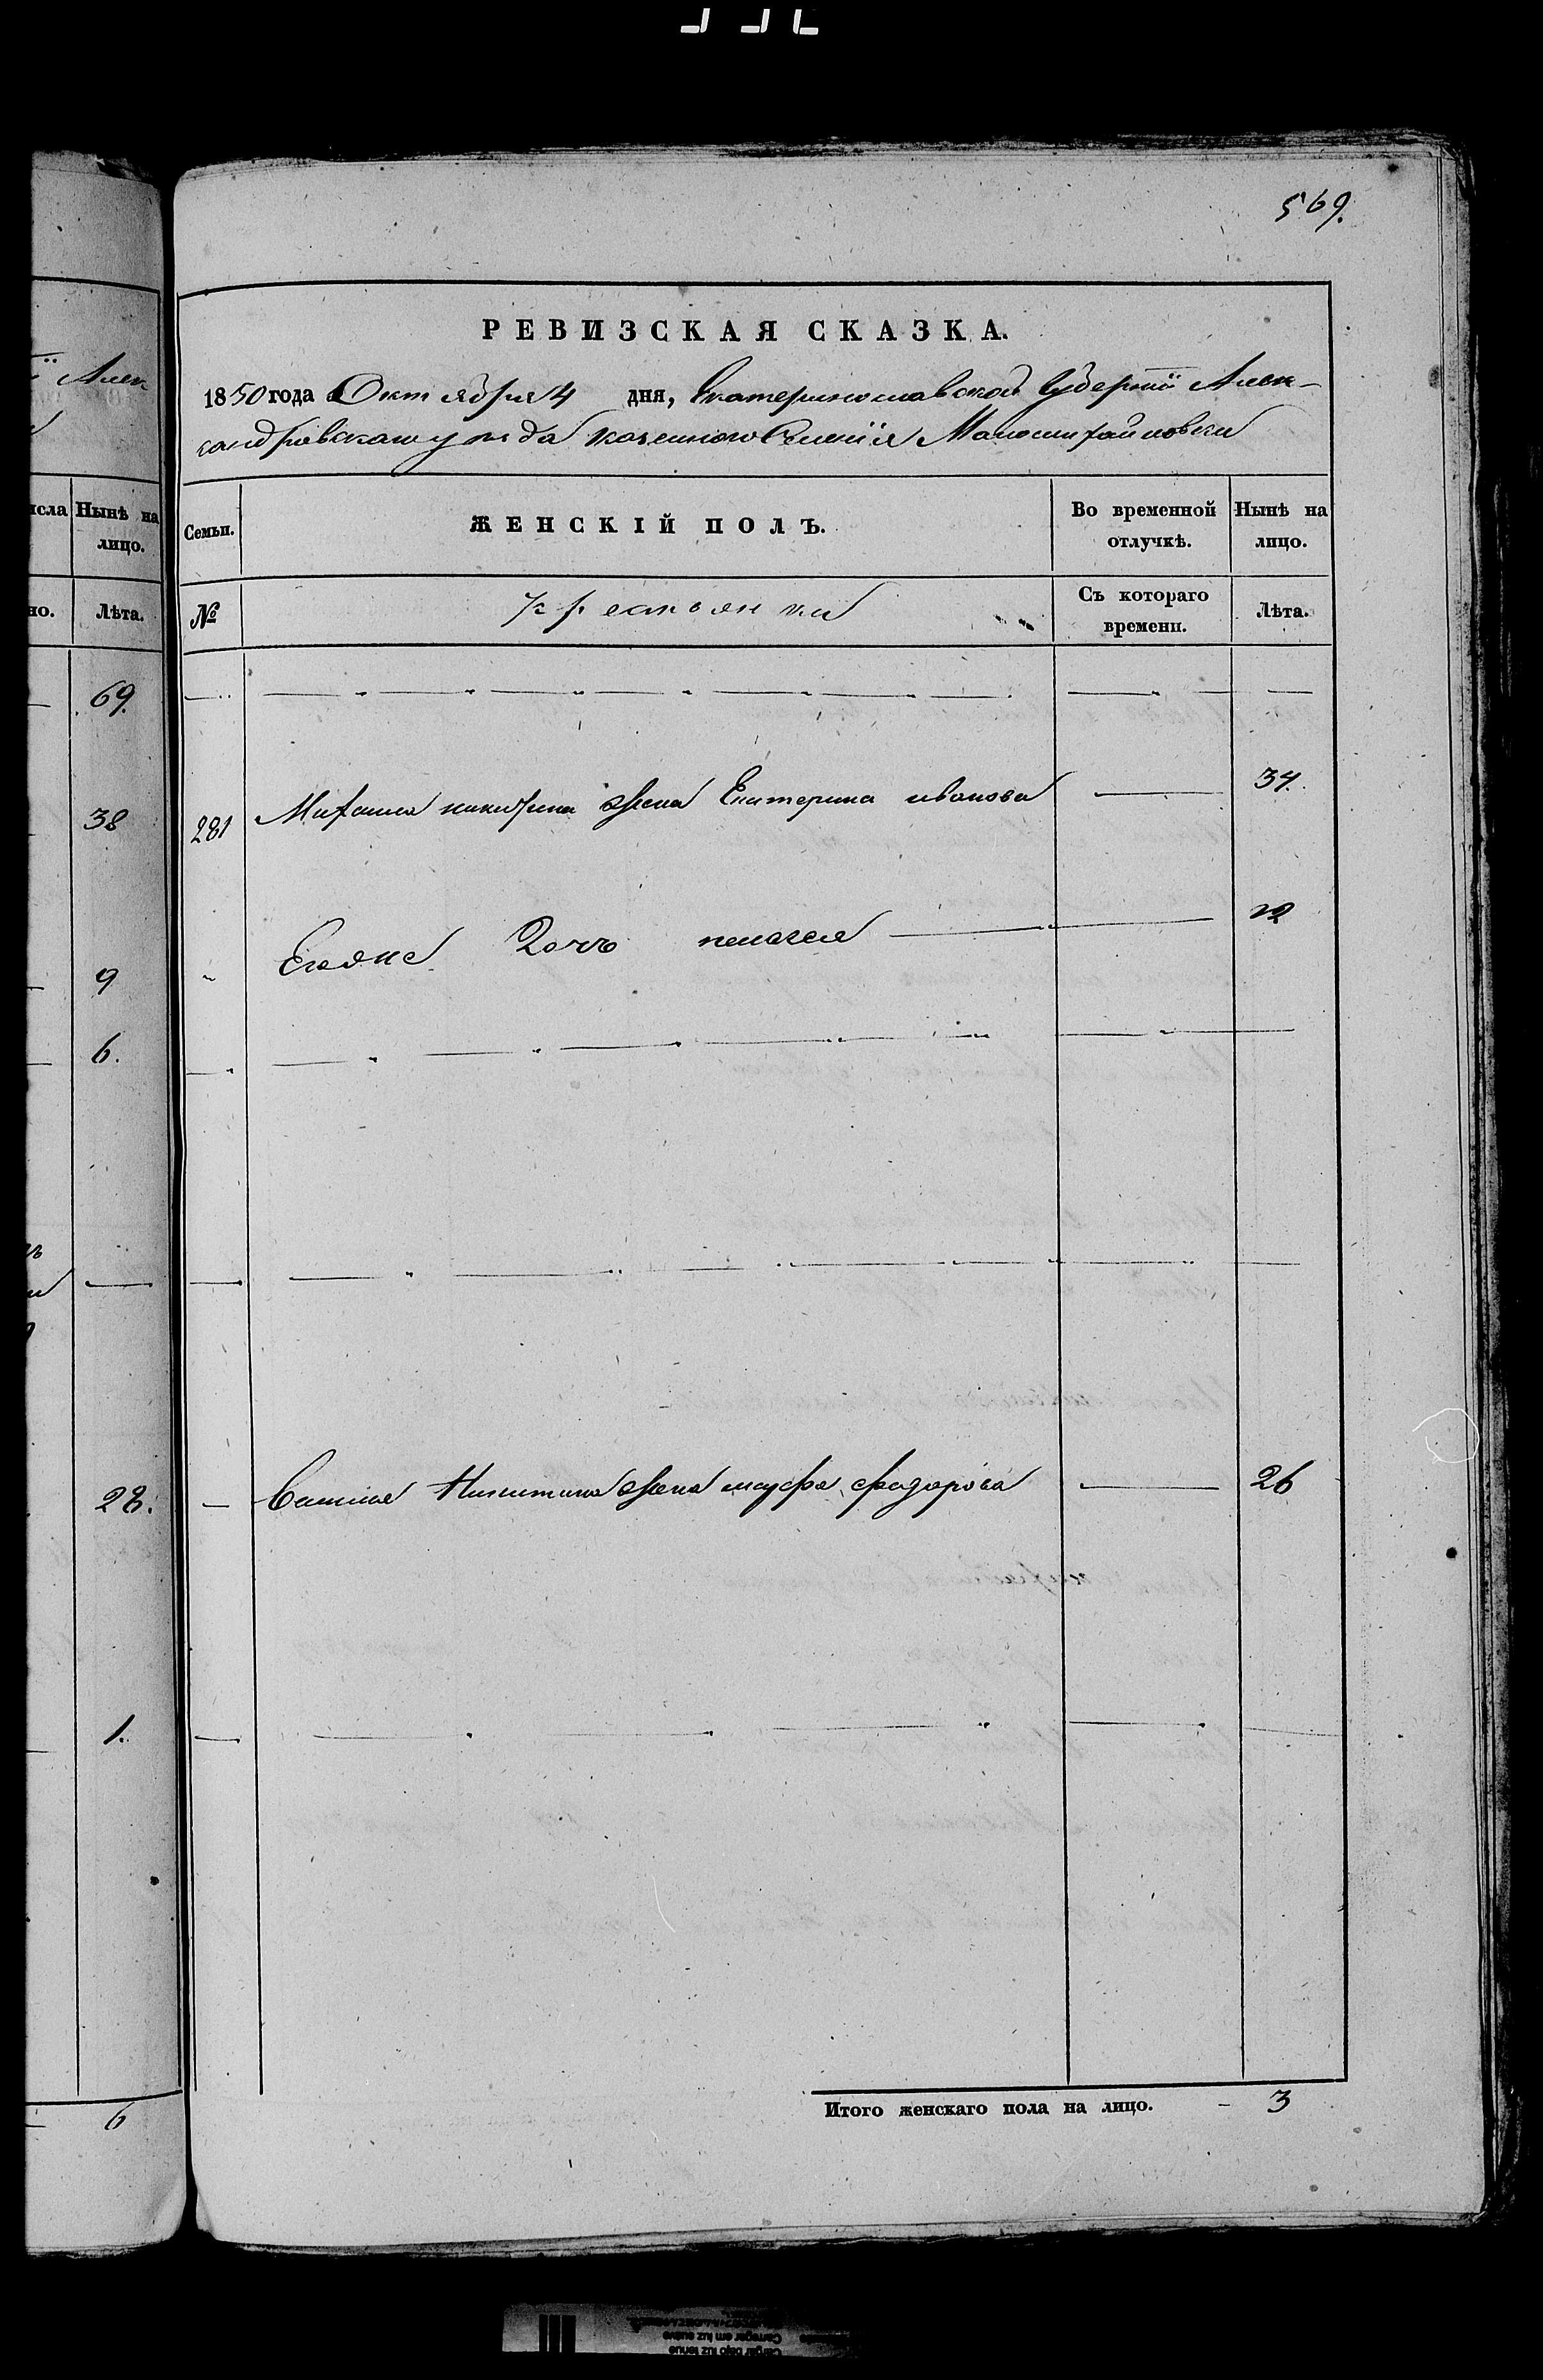 569.
РЕВИЗСКАЯ СКАЗКА.
1850 года Октября 4 дня, Екатеринославской Губернiи Алек-
сандровскаго уезда казенного Селенiя Маломихайловки
Алек
исла Нынѣ на лицо.
но. Лѣта.
69.
38
9
6.
28.
1.
6
Семьи. ЖЕНСКIЙ ПОЛЪ. Во временной отлучкѣ. Нынѣ на лицо.
№ крестьянки Съ котораго времени. Лѣта.
281 Михаила никитина жена Екатерина иванова 34.
Егоже Дочь пелагея 12
Василия Никитина жена марфа федорова 26
Итого женскаго пола на лицо. - 3